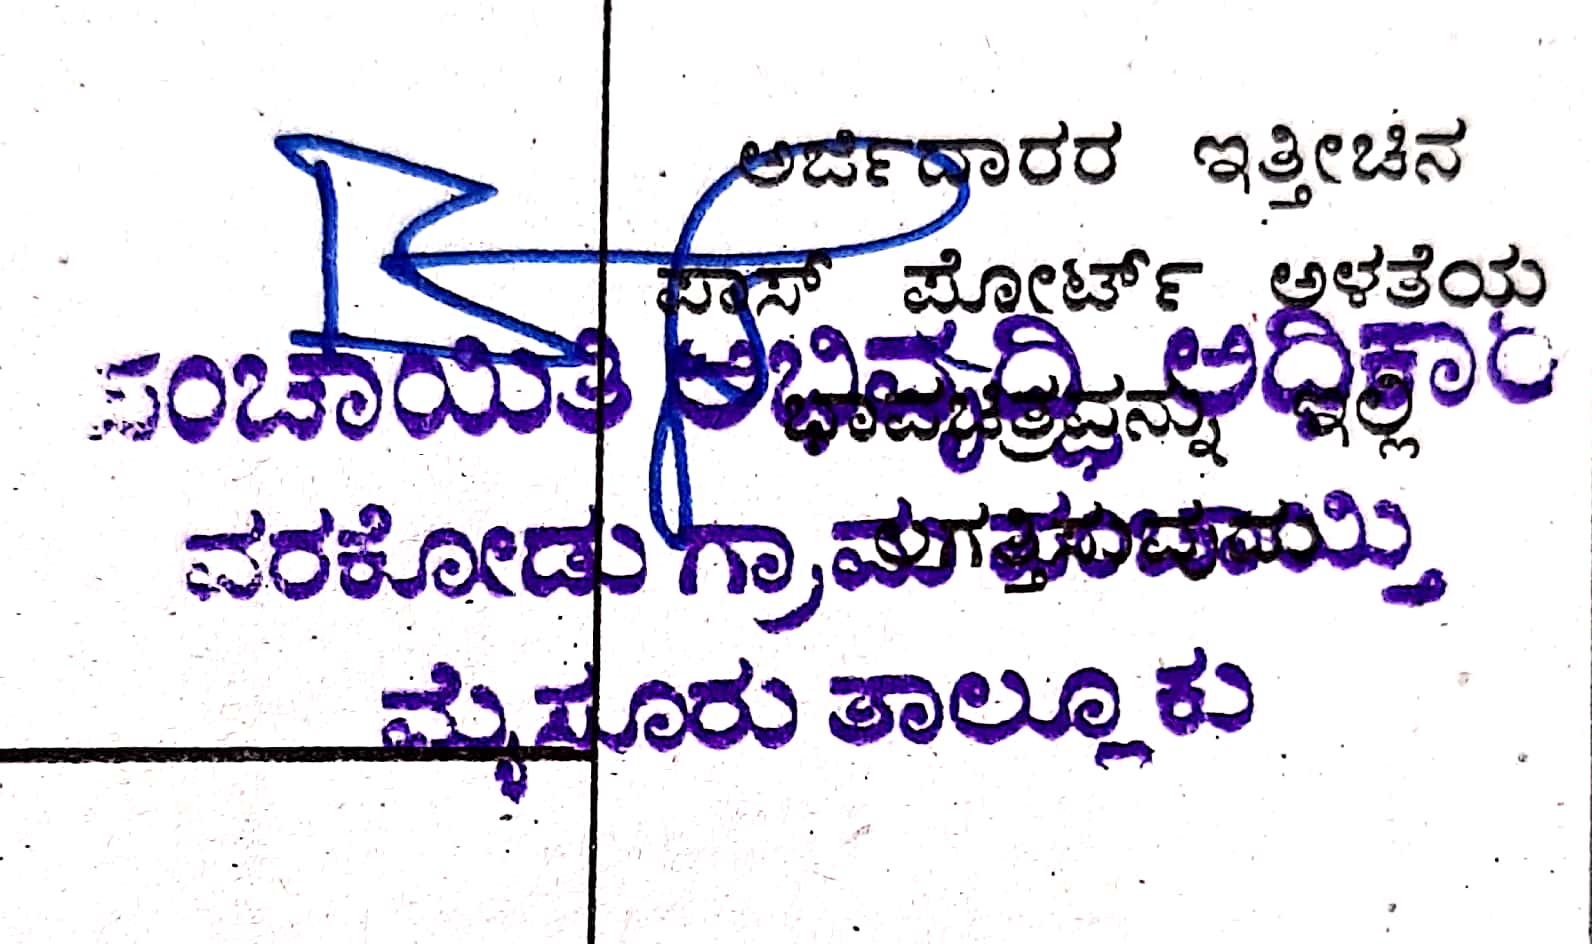 ಅರ್ಜಿದಾರರ ಇತ್ತೀಚಿನ
ಪಾಸ್ ಪೋರ್ಟ್ ಅಳತೆಯ
ಪಂಚಾಯಿತಿ ಅಭಿವೃದ್ಧಿ ಅಧಿಕಾರಿ
ಭಾವಚಿತ್ರವನ್ನು ಇಲ್ಲಿ
ವರಕೋಡು ಗ್ರಾಮ ಪಂಚಾಯ್ತಿ
ಮೈಸೂರು ತಾಲ್ಲೂಕು